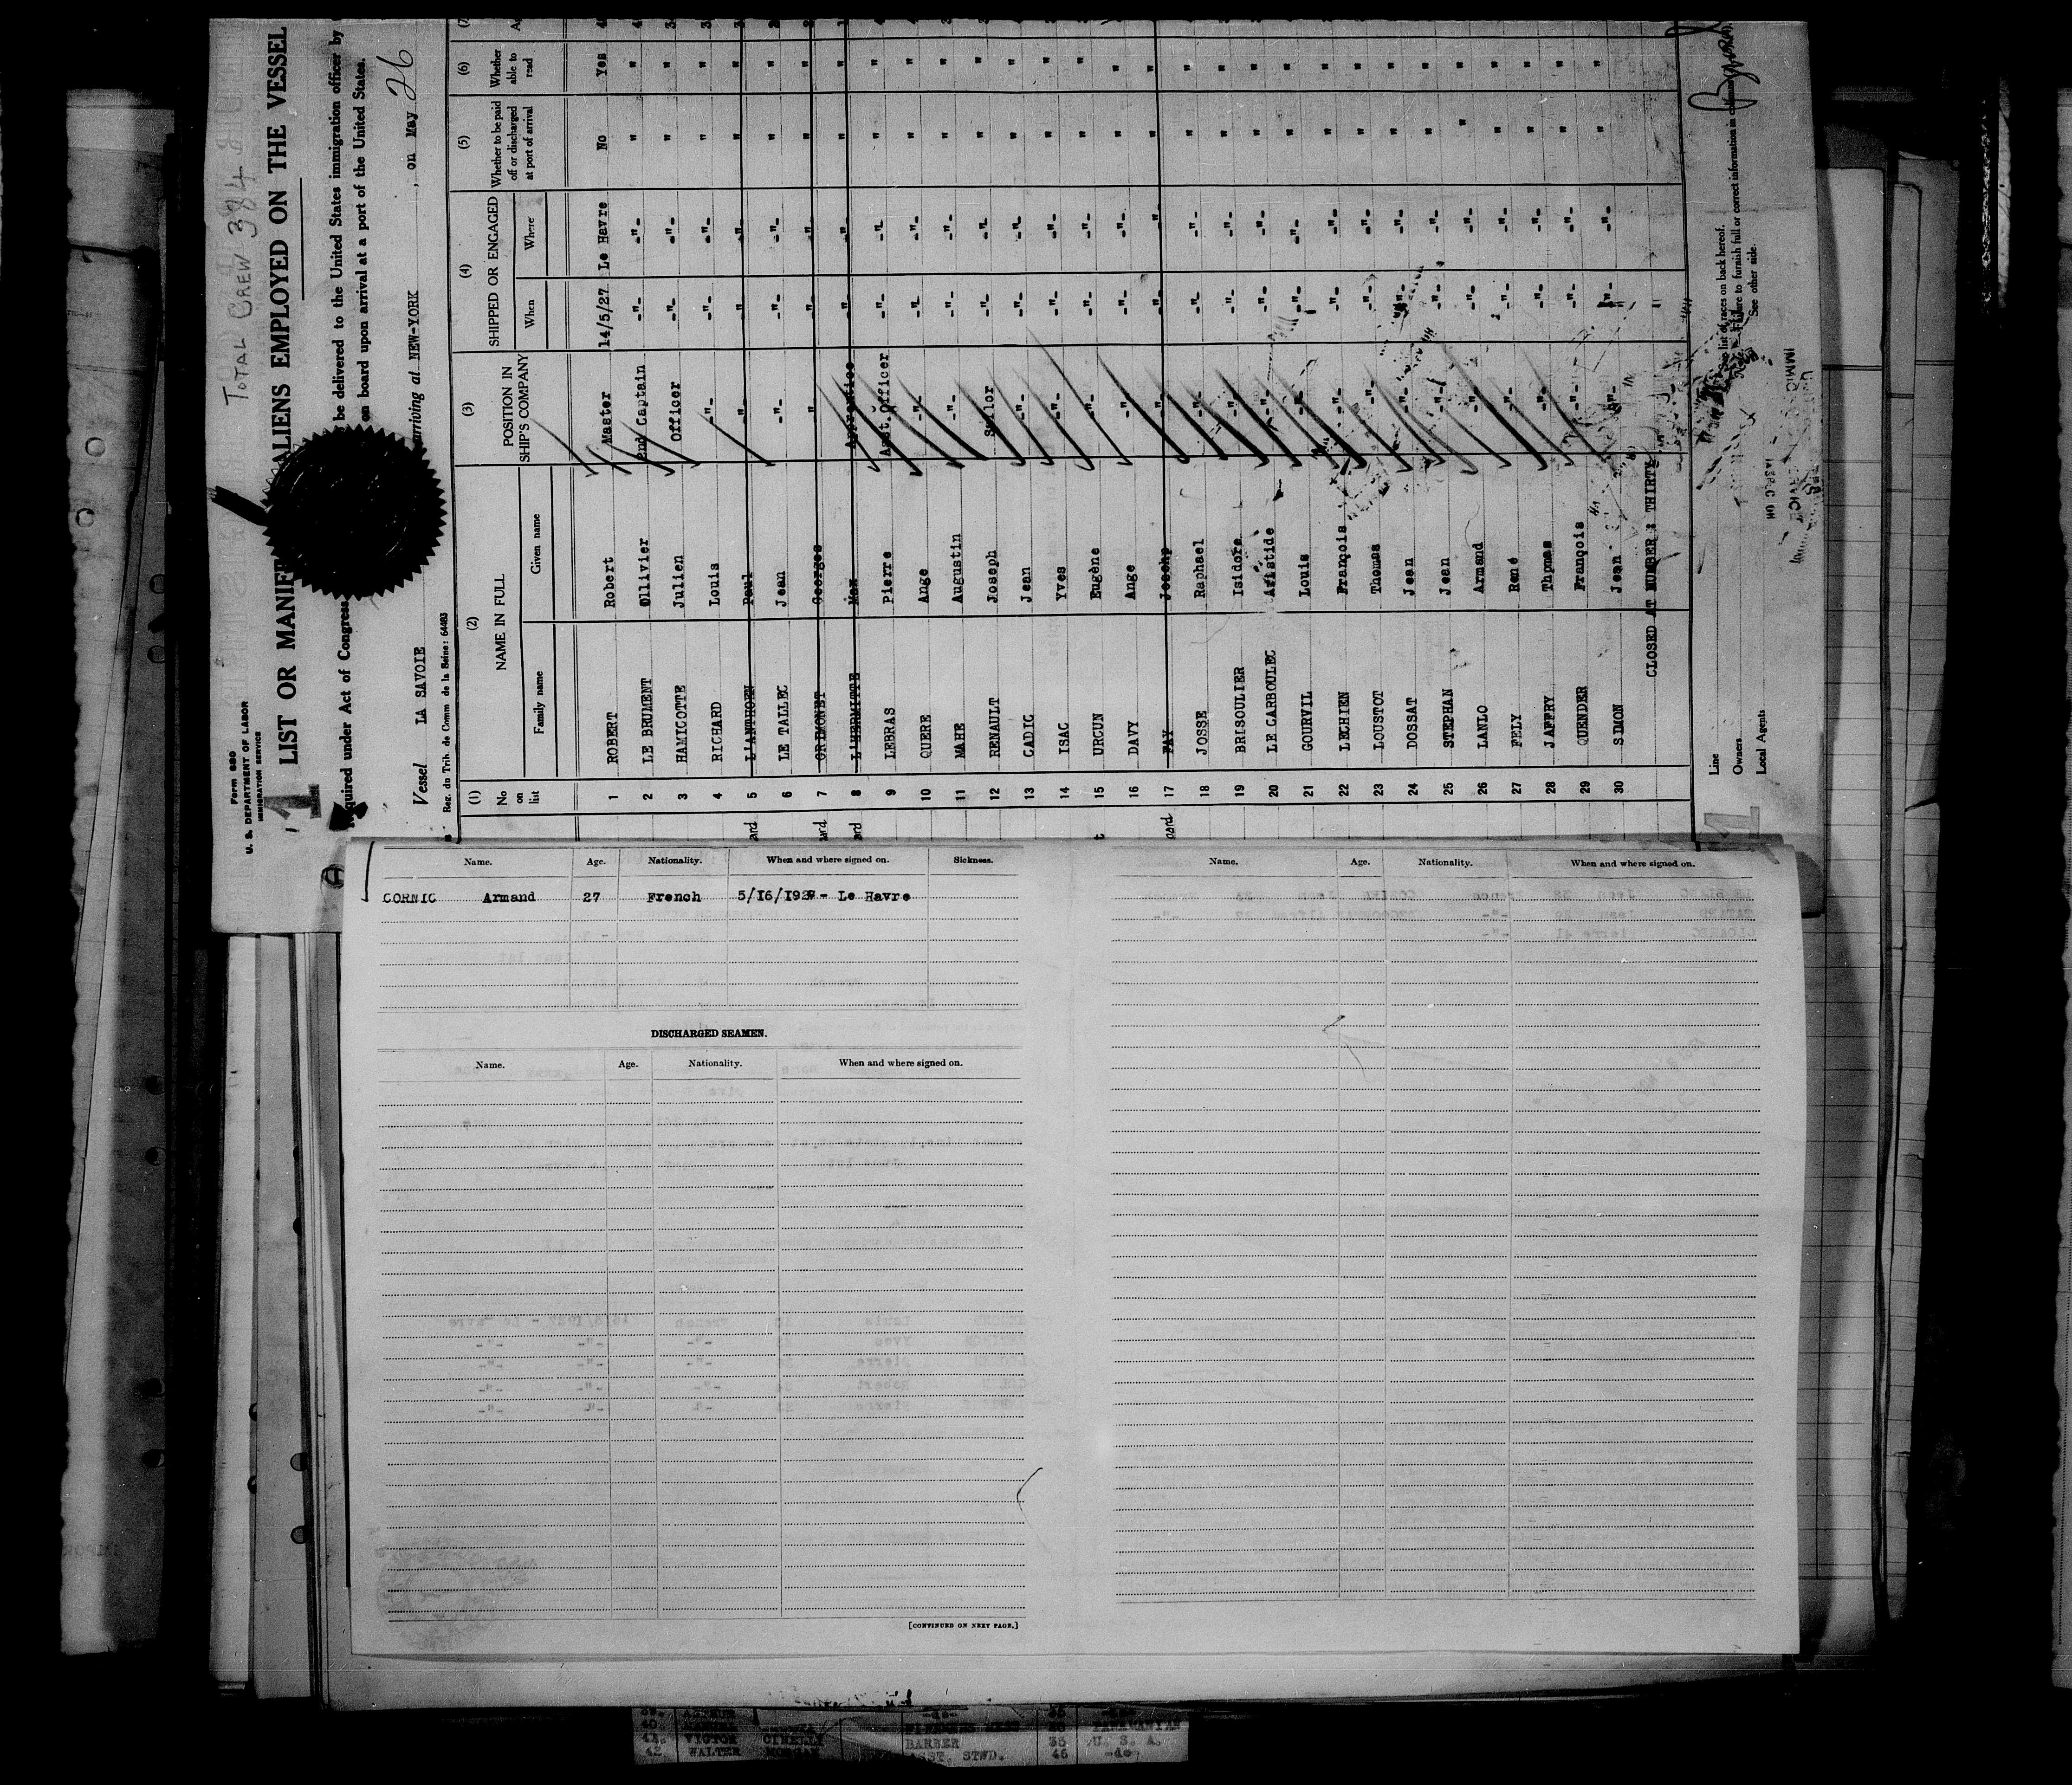 TOTAL CREW 384
Form 680
U. S. DEPARTMENT OF LABOR
IMMIGRATION SERVICE
1
LIST OR MANIFEST ALIENS EMPLOYED ON THE VESSEL
Required under Act of Congress be delivered to the United States immigration officer by
on board upon arrival at a port of the United States.
Vessel LA SAVOIE arriving at NEW-YORK , on May 26
Reg. du Trib. de Comm de la Seine: 64483
(1) (2) (3) (4) (5) (6) (7)
No on list NAME IN FULL POSITION IN SHIP'S COMPANY SHIPPED OR ENGAGED Whether to be paid off or discharged at port of arrival Whether able to read
Family name Given name When Where
1 ROBERT Robert Master 14/5/27 Le Havre No Yes
2 LE BRUMENT Ollivier 2nd Captain -"- -"- " "
3 HAMICOTTE Julien Officer -"- -"- " "
4 RICHARD Louis -"- -"- -"- " "
5 L'ANTHOEN Paul -"- -"- -"- " "
6 LE TALLEC Jean -"- -"- -"- " "
7 Georges " " " " "
8 L'HERMITTE Max Apprentice " " " "
9 LEBRAS Pierre Asst.Officer -"- -"- " "
10 QUERE Ange -"- -"- -"- " "
11 MAHE Augustin -"- -"- -"- " "
12 RENAULT Joseph Sailor -"- -"- " "
13 CADIC Jean -"- -"- -"- " "
14 ISAC Yves -"- -"- -"- " "
15 URCUN Eugène -"- -"- -"- " "
16 DAVY Ange -"- -"- -"- " "
17 FAY Joseph -"- -"- -"- " "
18 JOSSE Raphael -"- -"- -"- " "
19 BRISOULIER Isidore -"- -"- -"- " "
20 LE CARBOULEC Aristide -"- -"- -"- " "
21 GOURVIL Louis -"- -"- -"- " "
22 LECHIEN François -"- -"- -"- " "
23 LOUSTOT Thomas -"- -"- -"- " "
24 DOSSAT Jean -"- -"- -"- " "
25 STEPHAN Jean -"- -"- -"- " "
26 LANLO Armand -"- -"- -"- " "
27 FELY René -"- -"- -"- " "
28 JAFFRY Thpmas -"- -"- -"- " "
29 QUENDER François -"- -"- -"- " "
30 SIMON Jean -"- -"- -"- " "
CLOSED AT NUMBER : THIRTY
Line
Owners
Local Agents
list of races on back hereof.
Failure to furnish full or correct information in
See other side.
Name. Age. Nationality. When and where signed on. Sickness.
CORNIC Armand 27 French 5/16/1927 - Le Havre
DISCHARGED SEAMEN.
Name. Age. Nationality. When and where signed on.
[CONTINUED ON NEXT PAGE.]
Name. Age. Nationality. When and where signed on.
40
VICTOR CINELLY BARBER 35 U. S. A.
42 WALTER MORGAN ASST. STWD. 46 -do-